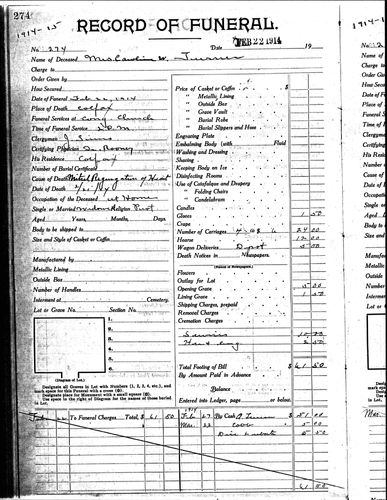 274
1914-15
RECORD OF FUNERAL.
No. 274 Date FEB 22 1914 19
Name of Deceased Mrs Caroline W. Turner
Charge to
Order Given by
How Secured
Date of Funeral Feb 22, 1914
Place of Death Colfax
Funeral Services at Cong Church
Time of Funeral Service 2 P.M.
Clergyman J.
Certifying Physician Dr Rooney
His Residence Colfax
Number of Burial Certificate
Cause of Death Mitral Regurgitation of Heart
Date of Death 2/21/14
Occupation of the Deceased at Home
Single or Married Widow Religion Prot
Aged Years, Months, Days.
Body to be shipped to
Size and Style of Casket or Coffin
Manufactured by
Metallic Lining
Outside Box
Number of Handles
Interment at Cemetery.
Lot or Grave No. Section No.
1.
2.
3.
4.
5.
(Diagram of Lot.)
Designate all Graves in Lot with Numbers (1, 2, 3, 4, etc.), and mark space for this Funeral with a cross (X).
Designate place for Monument with a small square (□).
Use the space to the right of Diagram for the names of those buried in Lot.
Price of Casket or Coffin $
" Metallic Lining
" Outside Box
" Grave Vault
" Burial Robe
" Burial Slippers and Hose
Engraving Plate
Embalming Body (with Fluid
Washing and Dressing
Shaving
Keeping Body on Ice
Disinfecting Rooms
Use of Catafalque and Drapery
" Folding Chairs
" Candelabrum
Candles
Gloves 1 50
Crape
Number of Carriages 4 @ 6 24 00
Hearse 12 00
Wagon Deliveries Depot 5 00
Death Notices in Newspapers.
(Names of Newspapers.)
Flowers
Outlay for Lot
Opening Grave 5 00
Lining Grave 1 50
Shipping Charges, prepaid
Removal Charges
Cremation Charges
Services 10 00
2 50
Total Footing of Bill $ 61 50
By Amount Paid in Advance
Balance
Entered into Ledger, page or below.
Feb 22 To Funeral Charges Total, $ 61 50
1914
Feb 27 By Cash Turner $ 51 00
Mar. 22 5 00
5 50
61 50
1914-1
No.
Name
Charge
Order
How Se
Date o
Place o
Funeral
Time o
Clergym
Certifyi
His Res
Number
Cause o
Date o
Occupa
Single o
Aged
Body t
Size an
Manufa
Metallic
Outside
Number
Interme
Lot or
Mar.